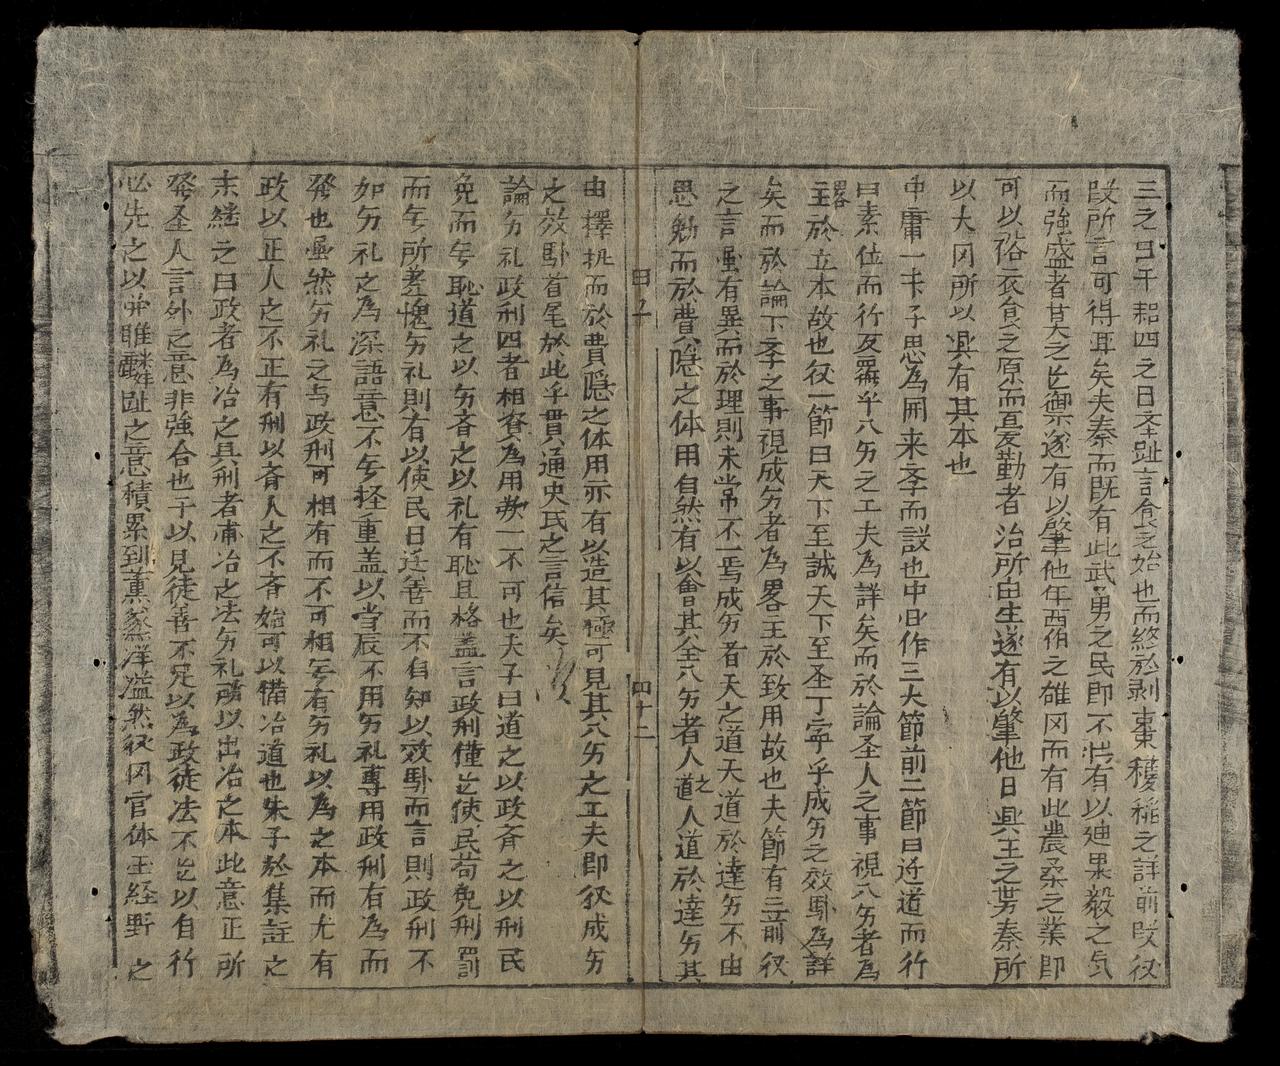 三之日于耜四之日㪯趾言食之始也而終於剥棗穫稲之詳前段仅
段所言可得耳矣夫秦而既有此武勇之民即不恃有以廸果毅之気
而強盛者其之禦遂有以肇他年西伯之雄冈而有此農桑之業即
可以裕衣食之原而憂勤者治所由生遂有以肇他日興王之秦所
以大冈所以興有其本也
中庸一卡子思為開来斈而説也中作三大節前二節曰道而行
曰素位而行反覆乎八夛之工夫為詳矣而於論圣人之事視八夛者為
畧主於立本故也仅一節曰天下至誠天下至圣丁寧乎成夛之效卧為詳
矣而於論下斈之事視成夛者為畧主於致用故也夫節有三前仅
之言虽有異而於理則未常不一焉成夛者天之道天道於達夛不由
思勉而於費隠之体用自然有以會其全八夛者人之道人道於達夛其
曰子
四十二
由擇执而於費隠之体用亦有以造其極可見其八夛之工夫即仅成夛
之效卧首尾於此乎貫通史氏之言信矣
論夛礼政刑四者相資為用欤一不可也夫子曰道之以政斉之以刑民
免而旡恥道之以夛斉之以礼有恥且格盖言政刑僅使民苟免刑罰
而旡所羞愧夛礼則有以使民日迁善而不自知以效卧而言則政刑不
如夛礼之為深語意不旡軽重盖以当辰不用夛礼専用政刑有為而
発也虽然夛礼之与政刑可相有而不可相旡有夛礼以為之本而尤有
政以正人之不正有刑以斉人之不斉始可以備治道也朱子於集註之
末繼之曰政者為治之具刑者甫治之法夛礼所以出治之本此意正所
発圣人言外之意非強合也于以見徒善不足以為政徒法不以自行
必先之以睢麟趾之意積累到薫蒸洋溢然仅冈官体王経野之